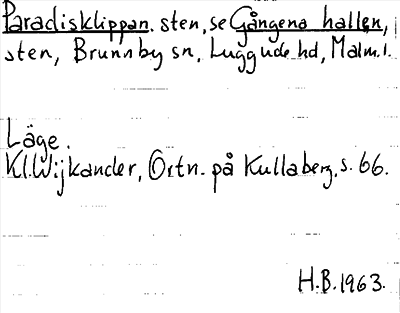 Paradisklippan. sten, se Gångena hallen,
sten, Brunnby sn, Luggude hd, Malm.l.
Läge.
Kl. Wijkander, Ortn. på Kullaberg, s. 66.
H.B. 1963.